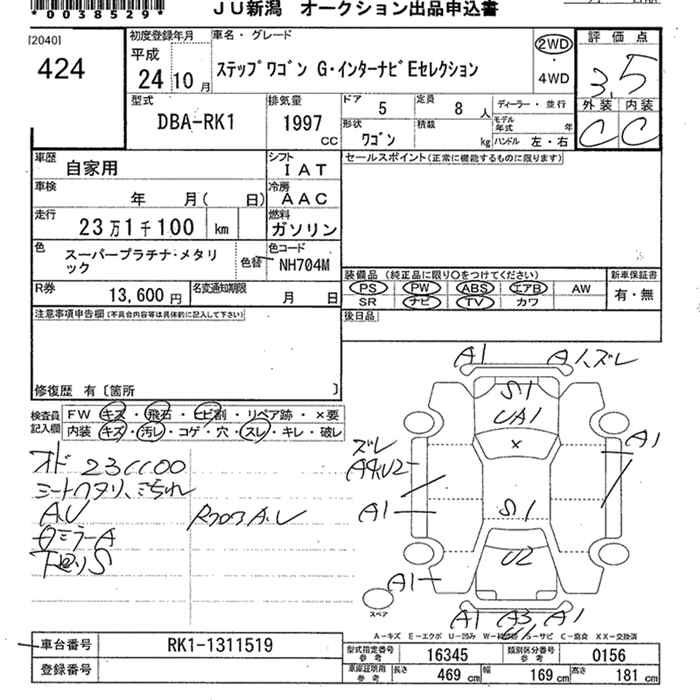 *0038529*
JU新潟 オークション出品申込書
[2040]
424
初度登録年月
平成
24年10月
車名・グレード
ステップワゴン G・インターナビEセレクション
2WD
・
4WD
評価点
3.5
外装 内装
C C
型式
DBA-RK1
排気量
1997
cc
ドア 5
定員 8 人
形状
ワゴン
積載
kg
ディーラー・並行
モデル年式 年
ハンドル 左・右
車歴
自家用
シフト
IAT
セールスポイント(正常に機能するものに限ります)
車検
年 月( 日)
冷房
AAC
走行
23万1千100 km
燃料
ガソリン
色
スーパープラチナ・メタリック
色替
色コード
NH704M
R券
13,600円
名変通知期限
月 日
装備品 (純正品に限り○をつけてください)
PS PW ABS エアB AW
SR ナビ TV カワ
新車保証書
有・無
注意事項申告欄(不具合内容等は具体的に記入して下さい)
後日品
修復歴 有〔箇所 〕
検査員記入欄
FW キズ・飛石・ヒビ割・リペア跡・×要
内装 キズ・汚レ・コゲ・穴・スレ・キレ・破レ
オド 231100
シートヘタリ、こちれ
A.U
ロミラーA
下廻りS
A.U
A1
A1、ズレ
S1
UA1
×
A1
ズレ
A4U2
A1
S1
U2
A1
スペア
A1
A3
A1
A-キズ E-エクボ U-凹み
C-腐食 XX-交換済
車台番号
RK1-1311519
型式指定番号
参考
16345
類別区分番号
参考
0156
登録番号
車庫証明用
参考
長さ 469cm
幅 169cm
高さ 181cm